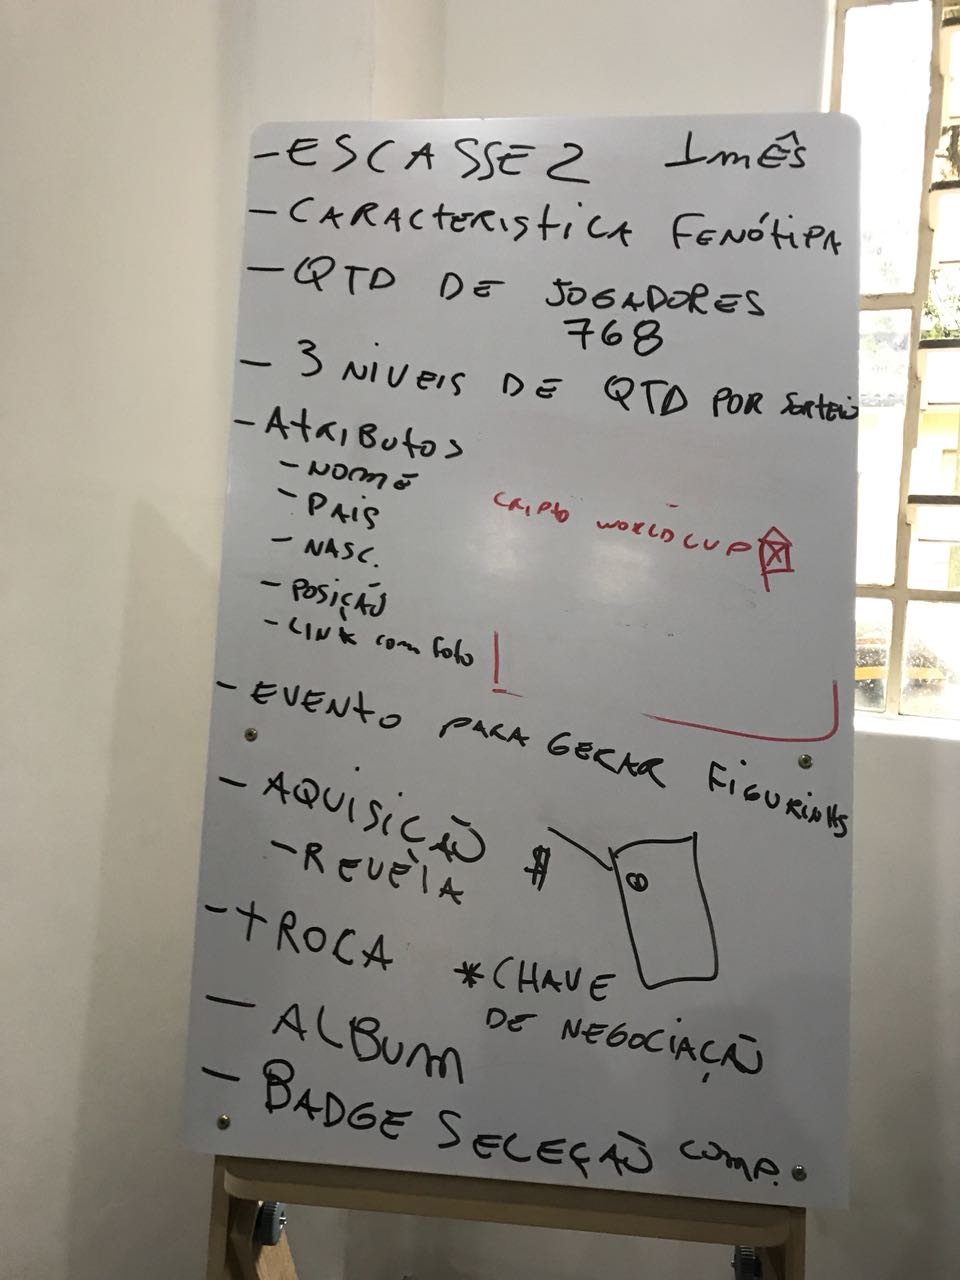 - ESCASSEZ 1 mÊs
- CARACTERIStiCA FENÓtiPA
- QTD DE JOGADORES
768
- 3 NIVEIS DE QTD POR SORTEIO
- AtRIButos
- NOME
- PAIS
- NASC.
- POSIÇÃO
- LINK com Foto
CRIPTO WORLD CUP
- EVENto PARA GERAR FIGURINHS
- AQUISIÇÃO $
- REVELA
- tROCA
* CHAVE
DE NEGOCIAÇÃO
- ALBUM
- BADGE SELEÇÃO COMP.